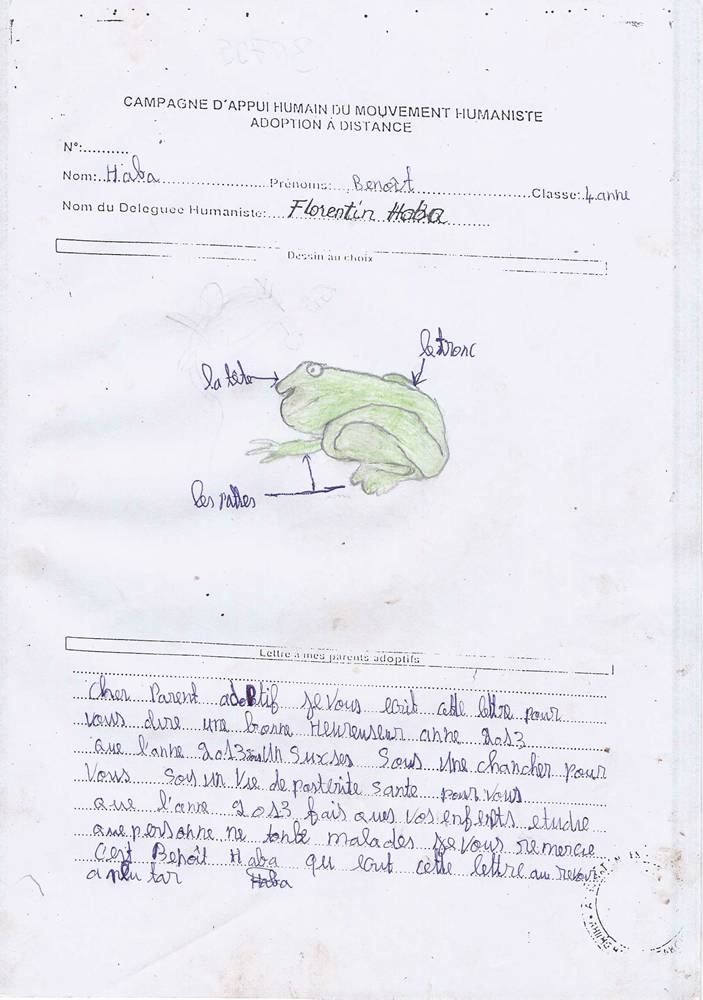 CAMPAGNE D'APPUI HUMAIN DU MOUVEMENT HUMANISTE
ADOPTION À DISTANCE
N°:..........
Nom: Haba Prénoms: Benoît Classe: 4 anne
Nom du Deleguee Humaniste: Florentin Haba
Dessin au choix
le tronc
la tête
les pattes
Lettre à mes parents adoptifs
cher Parent adoptif je vous ecrit cette lettre pour
vous dire une bonne Heureuseur anne 2013
que l'anne 2013 Un Suxses Sous Une chancher pour
Vous Soy un Vie de posterite sante pour vous
que l'anne 2013 fais ques vos enfants etudie
que personne ne tonbe malades je vous remercie
C'est Benoît Haba qu ecrit cette lettre au revoir
a plu tar Haba